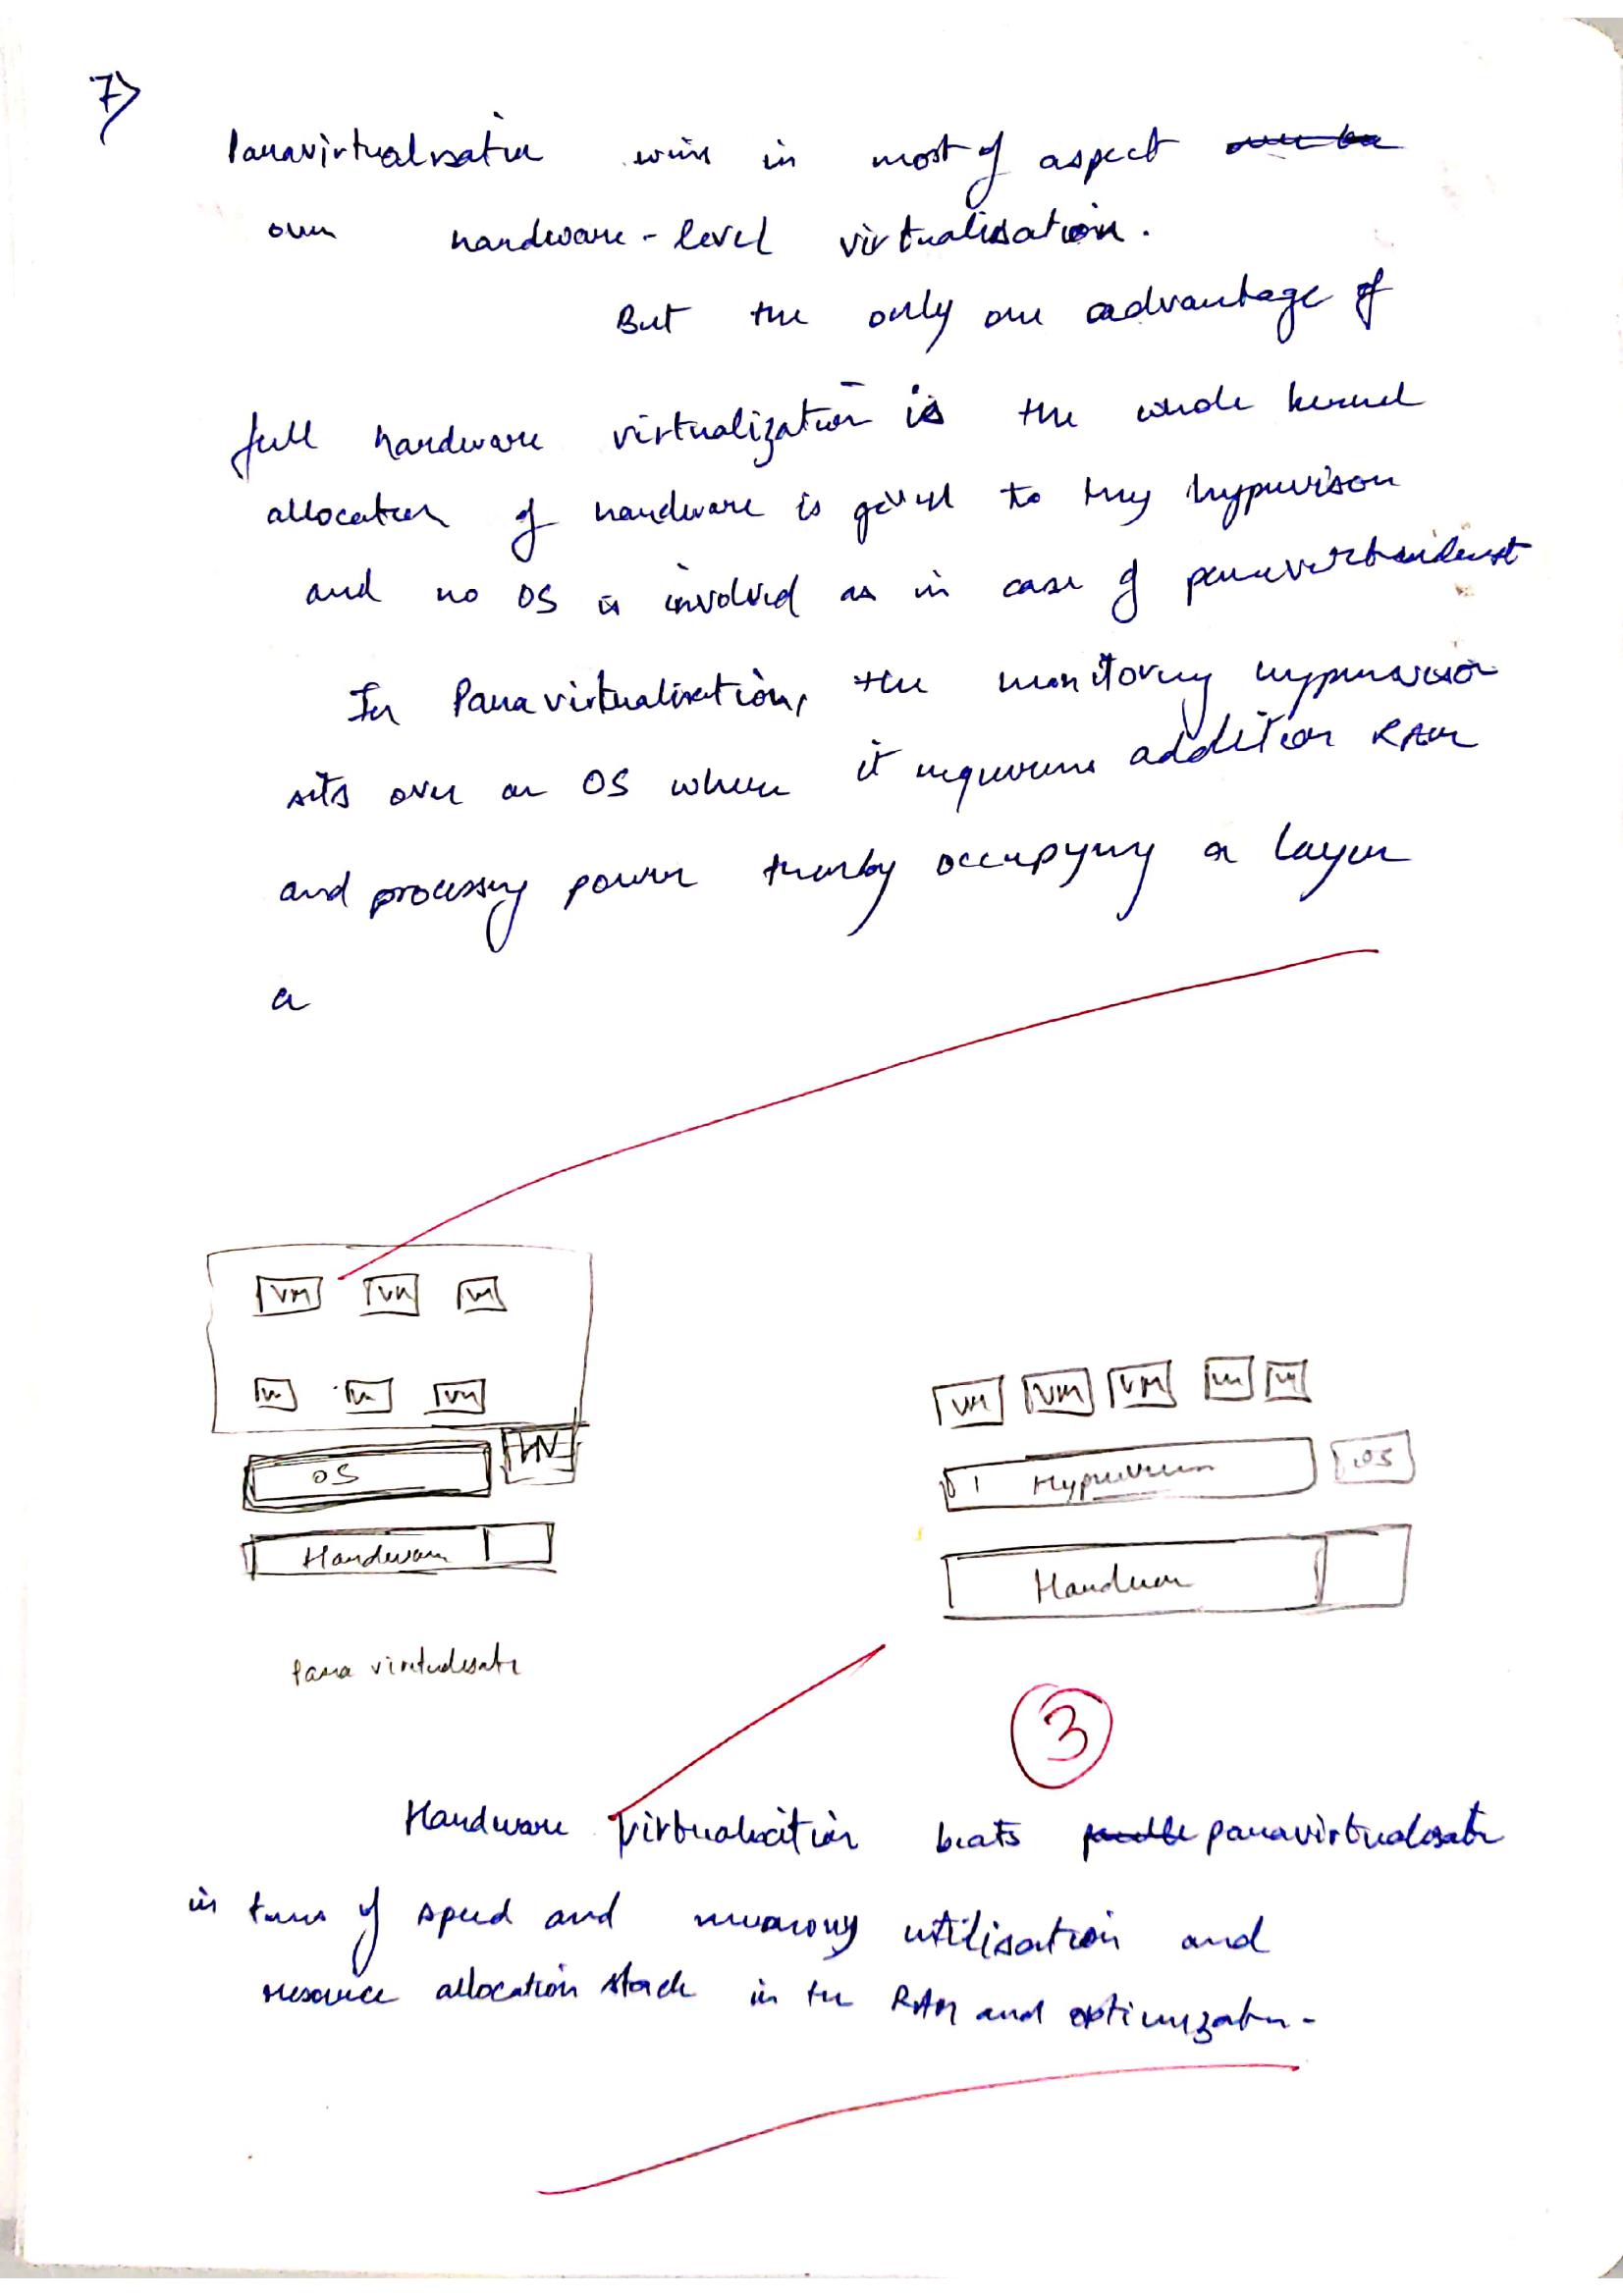 7)
Paravirtualisation wins in most of aspect
over hardware-level virtualisation.
But the only one advantage of
full hardware virtualization is the whole kernel
allocation of hardware is given to the hypervisor
and no OS is involved as in case of
In Paravirtualisation, the monitoring hypervisor
sits over an OS where it requires addition RAM
and processing power thereby occupying a layer
a
VM VM VM
VM VM VM
OS
Hardware
Para virtualisatn
VM VM VM VM VM
Hypervisor OS
Hardware
3
Hardware virtualisation beats paravirtualisatn
in terms of speed and memory utilisation and
resource allocation stack in the RAM and optimizatn.